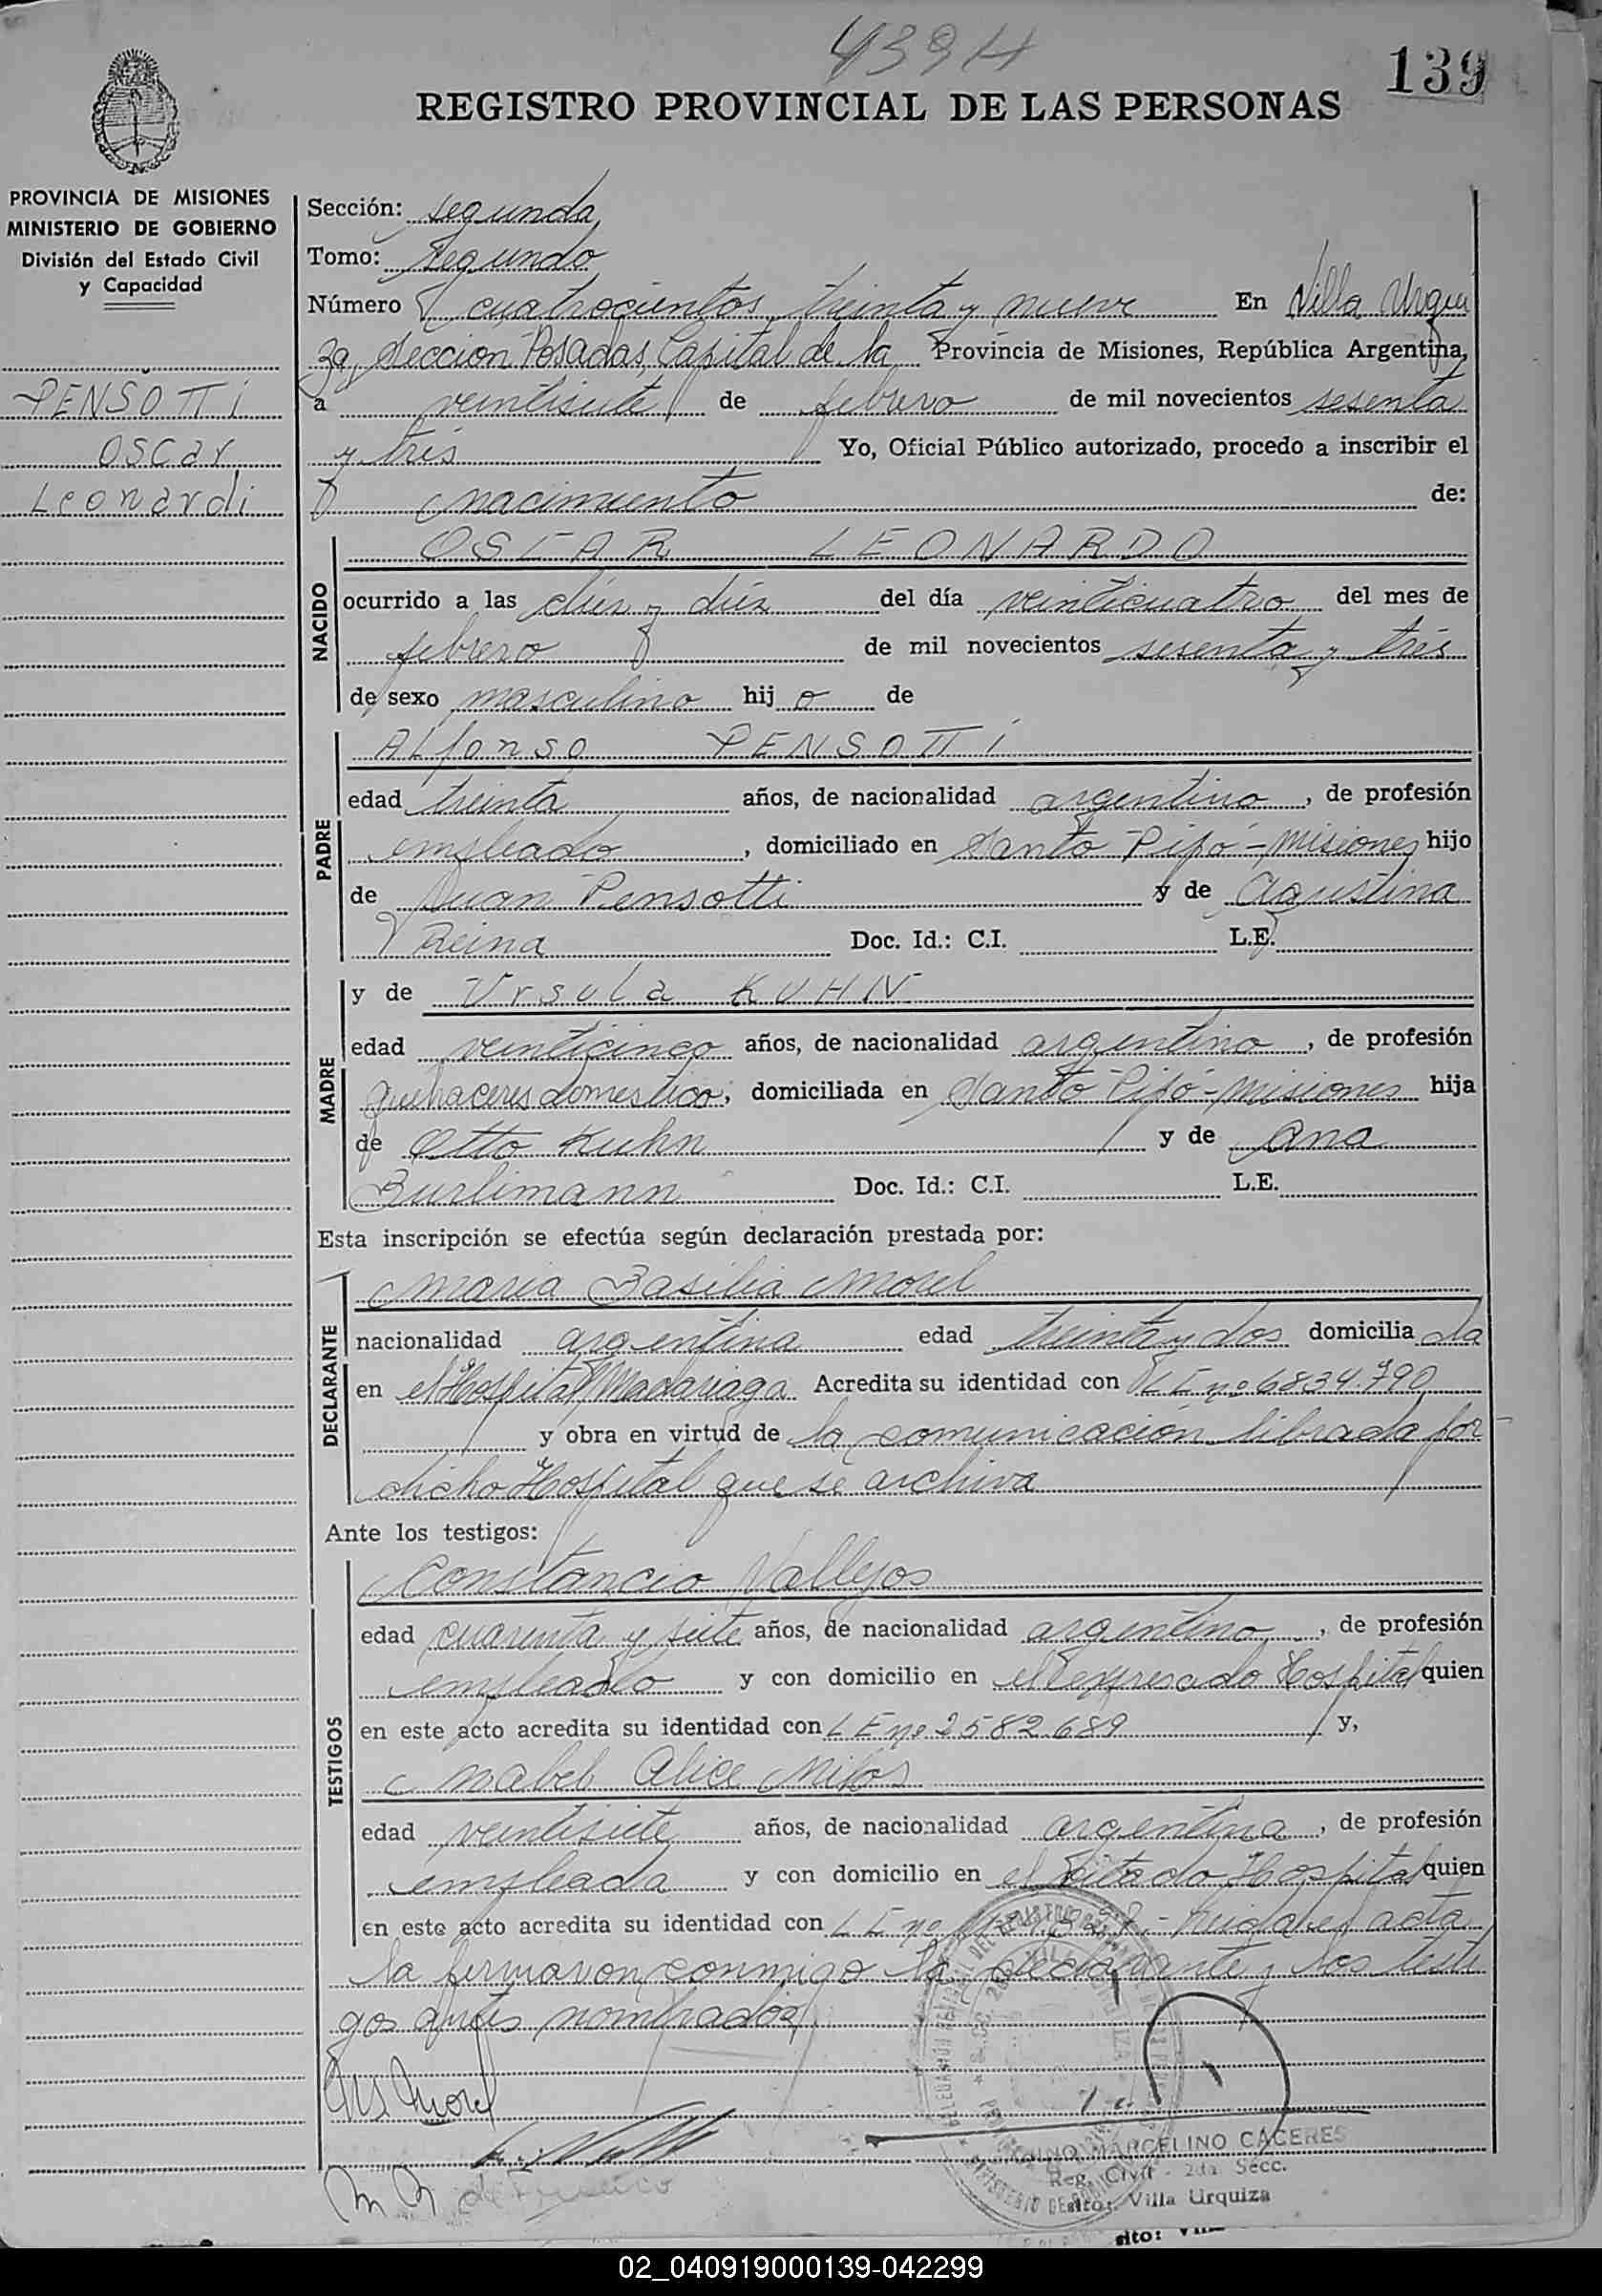 439 H
139
REGISTRO PROVINCIAL DE LAS PERSONAS
PROVINCIA DE MISIONES
MINISTERIO DE GOBIERNO
División del Estado Civil
y Capacidad
PENSOTTI
OSCAR
Leonardi
Sección: segunda
Tomo: segundo
Número cuatrocientos treinta y nueve En Villa Urqui
za, Seccion Posadas, Capital de la Provincia de Misiones, República Argentina,
a veintisiete de febrero de mil novecientos sesenta
y trés Yo, Oficial Público autorizado, procedo a inscribir el
nacimiento de:
NACIDO
OSCAR LEONARDO
ocurrido a las diez y diéz del día veinticuatro del mes de
febrero de mil novecientos sesenta y trés
de sexo masculino hijo de
PADRE
Alfonso PENSOTTI
edad treinta años, de nacionalidad argentino, de profesión
empleado, domiciliado en Santo Pipó - Misiones hijo
de Juan Pensotti y de Agustina
Reina Doc. Id.: C.I. L.E.
MADRE
y de Ursula KUHN
edad veinticinco años, de nacionalidad argentino, de profesión
quehaceres domestico; domiciliada en Santo Pipó - Misiones hija
de Otto Kuhn y de Ana
Burlimann Doc. Id.: C.I. L.E.
Esta inscripción se efectúa según declaración prestada por:
DECLARANTE
Maria Basilia Morel
nacionalidad argentina edad treinta y dos domicilia da
en el Hospital Madariaga Acredita su identidad con L E nº 6834.790
y obra en virtud de la comunicación librada por
dicho Hospital que se archiva
Ante los testigos:
TESTIGOS
Constancio Vallejos
edad cuarenta y siete años, de nacionalidad argentino, de profesión
empleado y con domicilio en el expresado Hospital quien
en este acto acredita su identidad con L E nº 2582.689 y,
Mabel Alice
edad veintisiete años, de nacionalidad argentina, de profesión
empleada y con domicilio en el citado Hospital quien
en este acto acredita su identidad con L E nº acta
la firmaron conmigo la declarante y los testi
gos antes nombrados
MARCELINO CACERES
Reg. Civil - 2da Secc.
Villa Urquiza
02_040919000139-042299